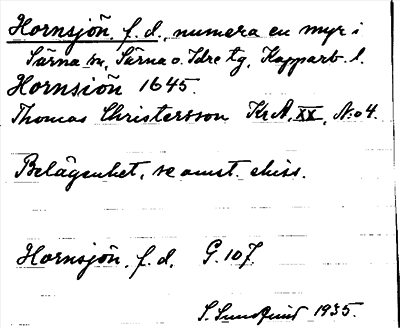 Hornsjön, f.d., numera en myr i
Särna sn, Särna o. Idre tg, Kopparb. l.
Hornsiön 1645.
Thomas Christersson Kr A, XX, N:o 4.
Belägenhet, se omst. skiss.
Hornsjön, f.d. G. 107.
S. Sundquist 1935.